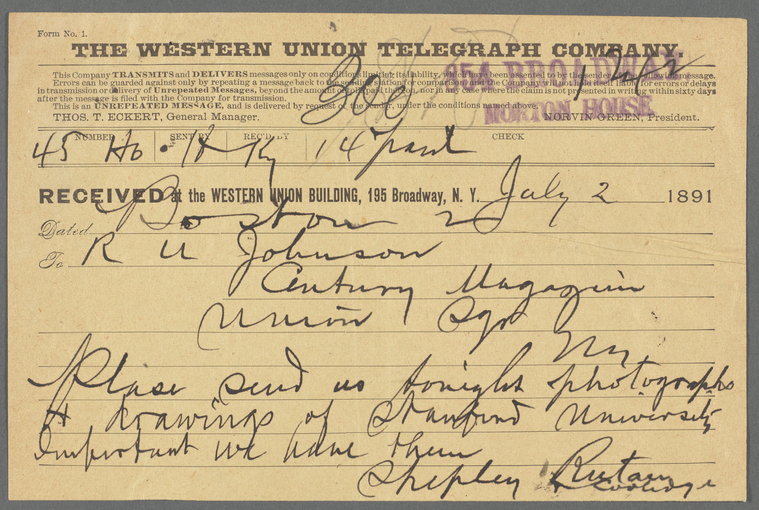 Form No. 1.
THE WESTERN UNION TELEGRAPH COMPANY.
This Company TRANSMITS and DELIVERS messages only on conditions limiting its liability, which have been assented to by the sender of the following message.
Errors can be guarded against only by repeating a message back to the sending station for comparison, and the Company will not hold itself liable for errors or delays
in transmission or delivery of Unrepeated Messages, beyond the amount of tolls paid thereon, nor in any case where the claim is not presented in writing within sixty days
after the message is filed with the Company for transmission.
This is an UNREPEATED MESSAGE, and is delivered by request of the sender, under the conditions named above.
THOS. T. ECKERT, General Manager. NORVIN GREEN, President.
854 BROADWAY
MORTON HOUSE
NUMBER SENT BY REC'D BY CHECK
45 Ho . H Ky 14 Paid
RECEIVED at the WESTERN UNION BUILDING, 195 Broadway, N. Y. July 2 1891
Dated Boston 2
To R U Johnson
Century Magazine
Union Sqr
Ny
Please send us tonight photographs
& drawings of Stanford University
Important we have them
Shepley Rutan
& Coolidge